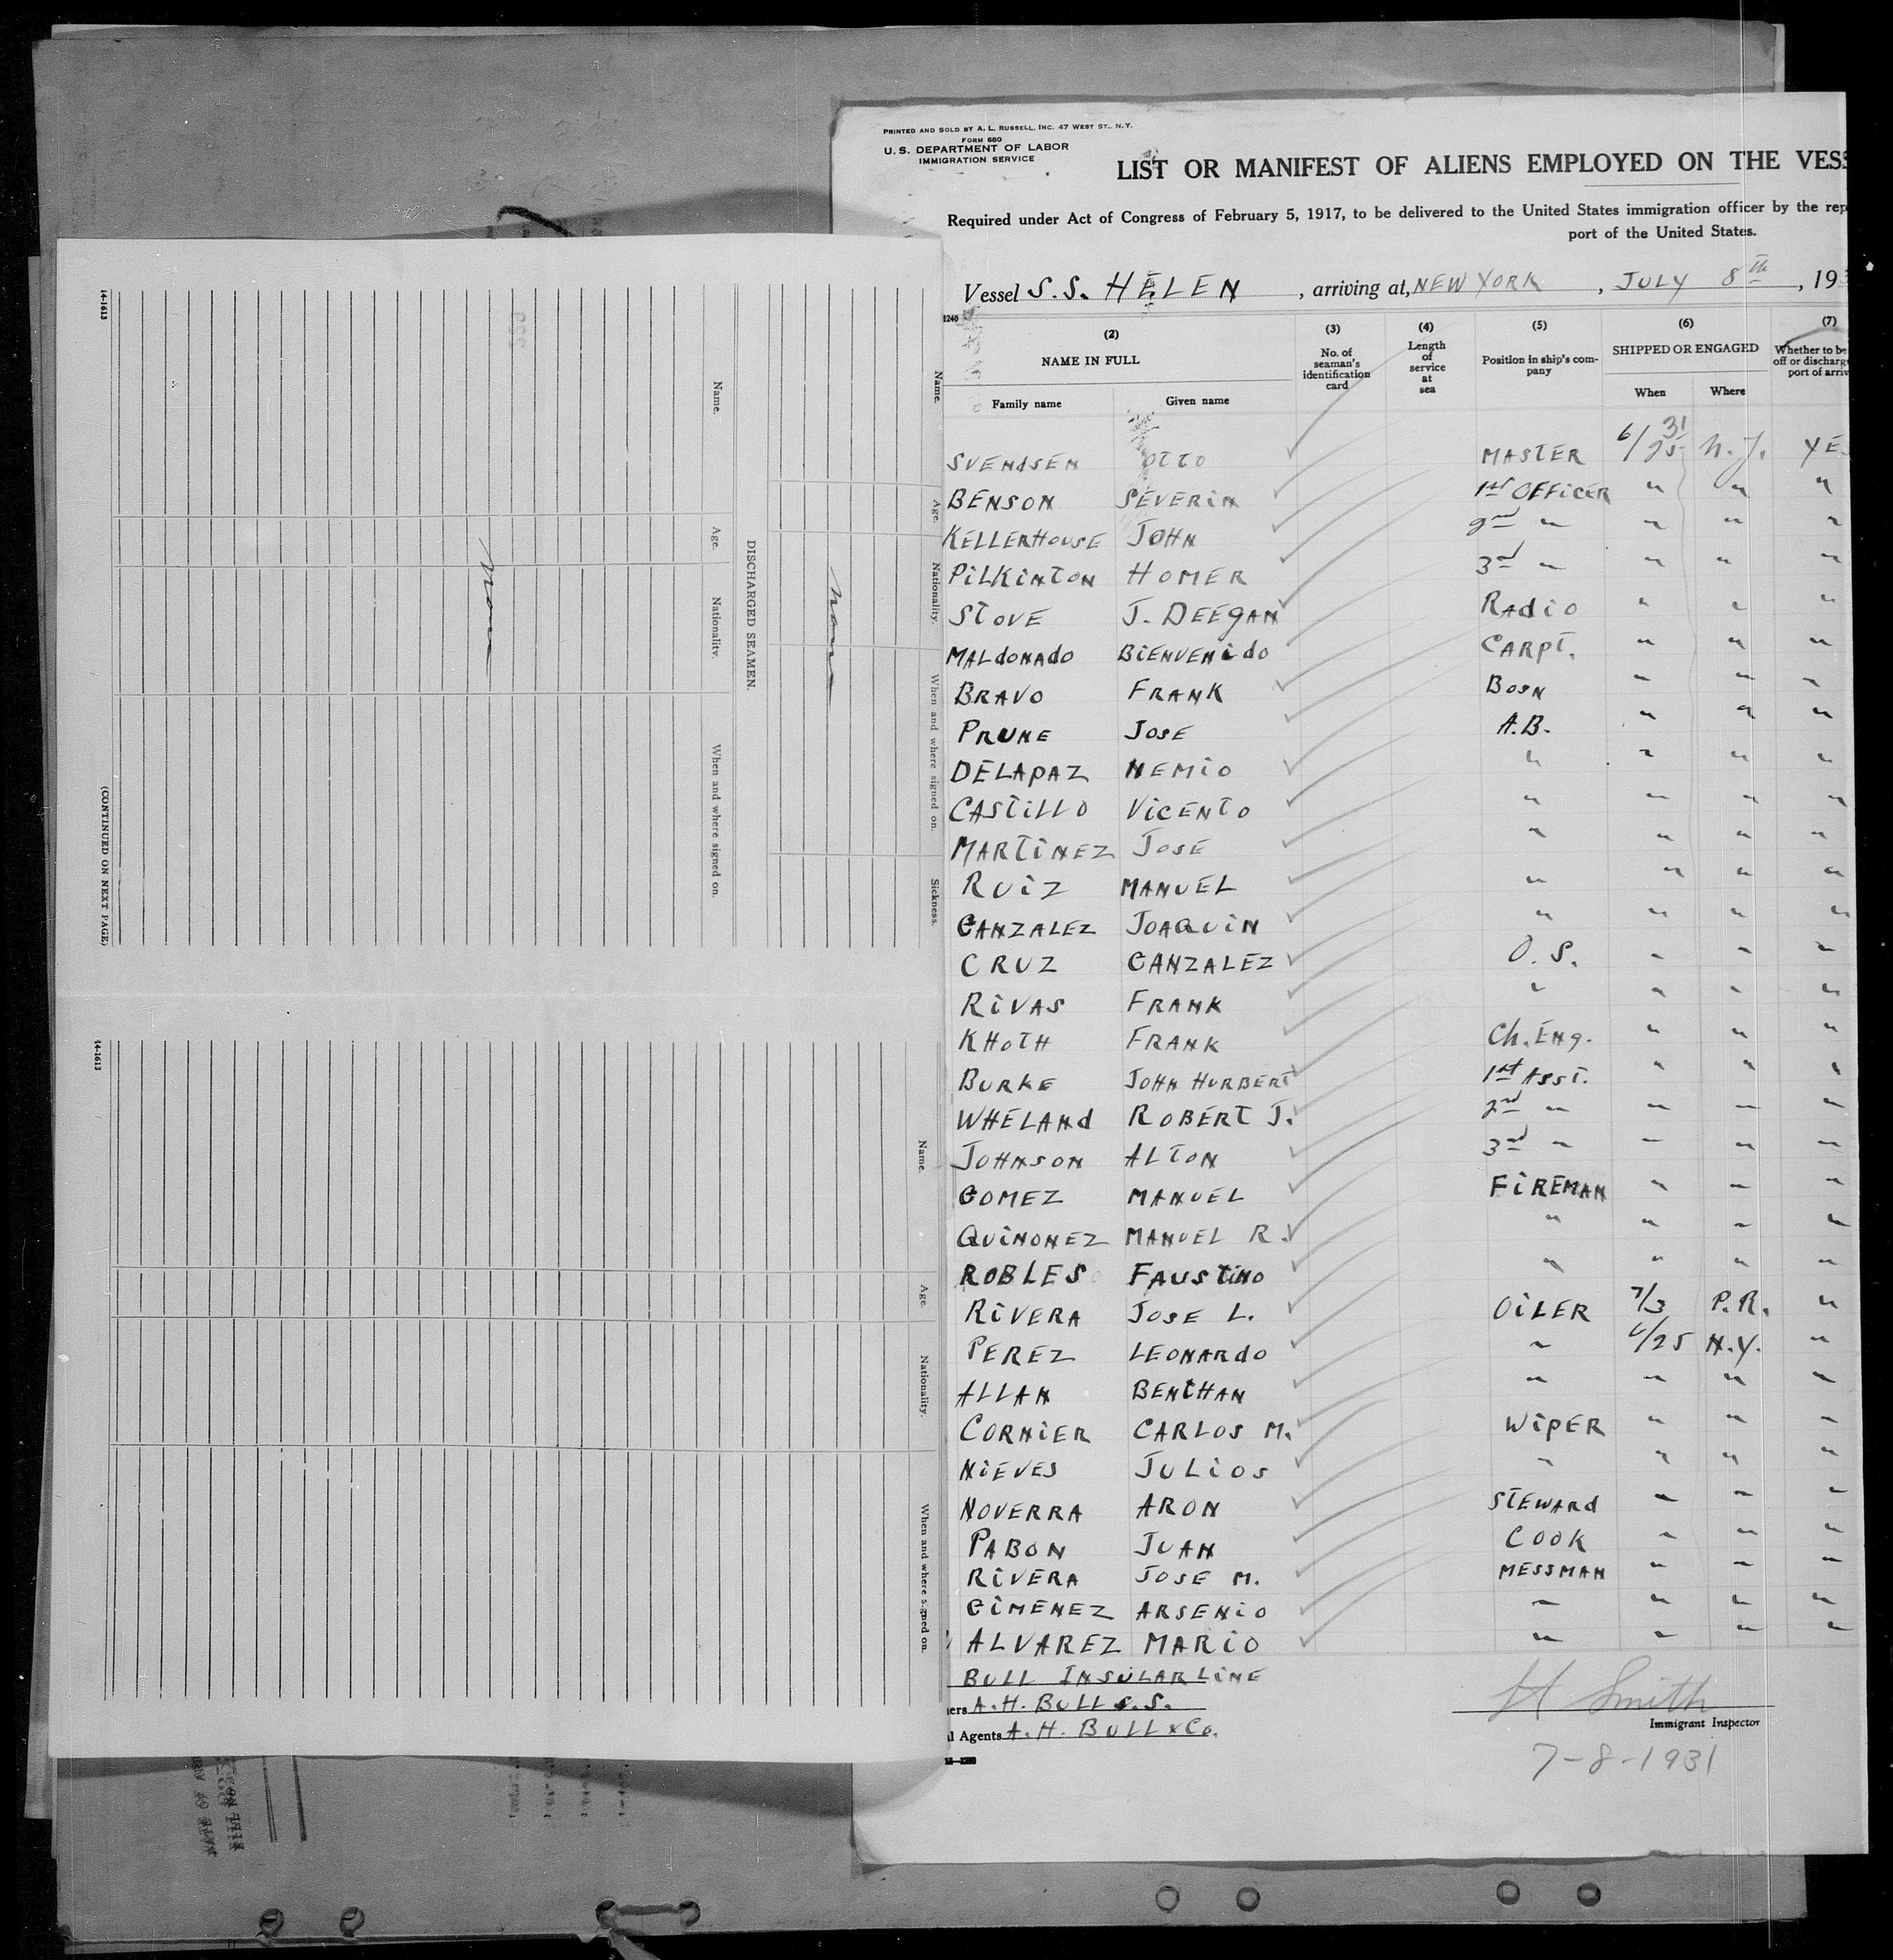 PRINTED AND SOLD BY A. L. RUSSELL, INC. 47 WEST ST., N.Y.
FORM 680
U. S. DEPARTMENT OF LABOR
IMMIGRATION SERVICE
LIST OR MANIFEST OF ALIENS EMPLOYED ON THE VESS
Required under Act of Congress of February 5, 1917, to be delivered to the United States immigration officer by the rep
port of the United States.
Vessel S.S. HELEN, arriving at, NEW YORK, JULY 8th, 193
1240
(2) (3) (4) (5) (6) (7)
NAME IN FULL No. of seaman's identification card Length of service at sea Position in ship's company SHIPPED OR ENGAGED Whether to be off or discharg port of arriv
Family name Given name When Where
SVENDSEN OTTO MASTER 6/25 31 N.Y. YES
BENSON SEVERIN 1st OFFICER " " "
KELLERHOUSE JOHN 2nd " " " "
PILKINTON HOMER 3rd " " " "
STOVE J. DEEGAN RADIO " " "
MALDONADO BIENVENIDO CARPT. " " "
BRAVO FRANK BOSN " " "
PRUNE JOSE A.B. " " "
DELAPAZ NEMIO " " " "
CASTILLO VICENTO " " " "
MARTINEZ JOSE " " " "
RUIZ MANUEL " " " "
GANZALEZ JOAQUIN " " " "
CRUZ GANZALEZ O.S. " " "
RIVAS FRANK " " " "
KHOTH FRANK Ch. ENg. " " "
BURKE JOHN HURBERT 1st ASST. " " "
WHELAND ROBERT J. 2nd " " " "
JOHNSON ALTON 3rd " " " "
GOMEZ MANUEL FIREMAN " " "
QUINONEZ MANUEL R. " " " "
ROBLES FAUSTINO " " " "
RIVERA JOSE L. OILER 7/3 P.R. "
PEREZ LEONARDO " 6/25 N.Y. "
ALLAN BENTHAN " " " "
CORNIER CARLOS M. WIPER " " "
NIEVES JULIOS " " " "
NOVERRA ARON STEWARD " " "
PABON JUAN COOK " " "
RIVERA JOSE M. MESSMAN " " "
GIMENEZ ARSENIO " " " "
ALVAREZ MARIO " " " "
BULL INSULAR LINE
ers A.H. BULL S.S.
l Agents A.H. BULL & Co.
H Smith
Immigrant Inspector
7-8-1931
Name. Age. Nationality. When and where signed on. Sickness.
None
DISCHARGED SEAMEN.
Name. Age. Nationality. When and where signed on.
None
14-1613
(CONTINUED ON NEXT PAGE)
Name. Age. Nationality. When and where signed on.
14-1613